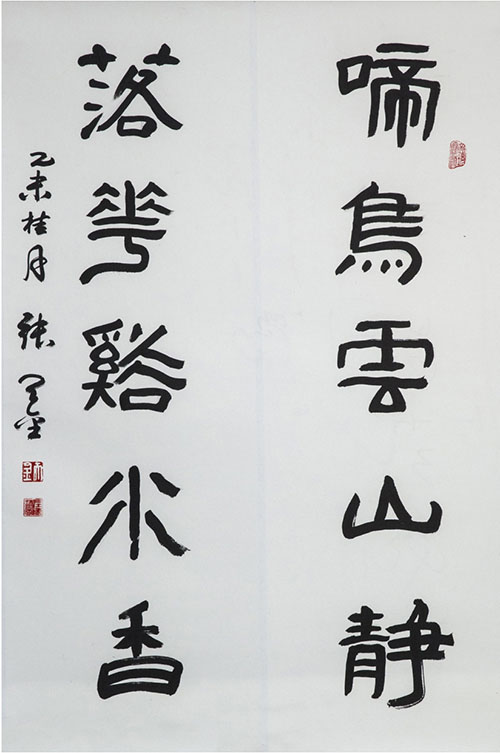 啼鳥雲山静
落華谿水香
乙未桂月 張